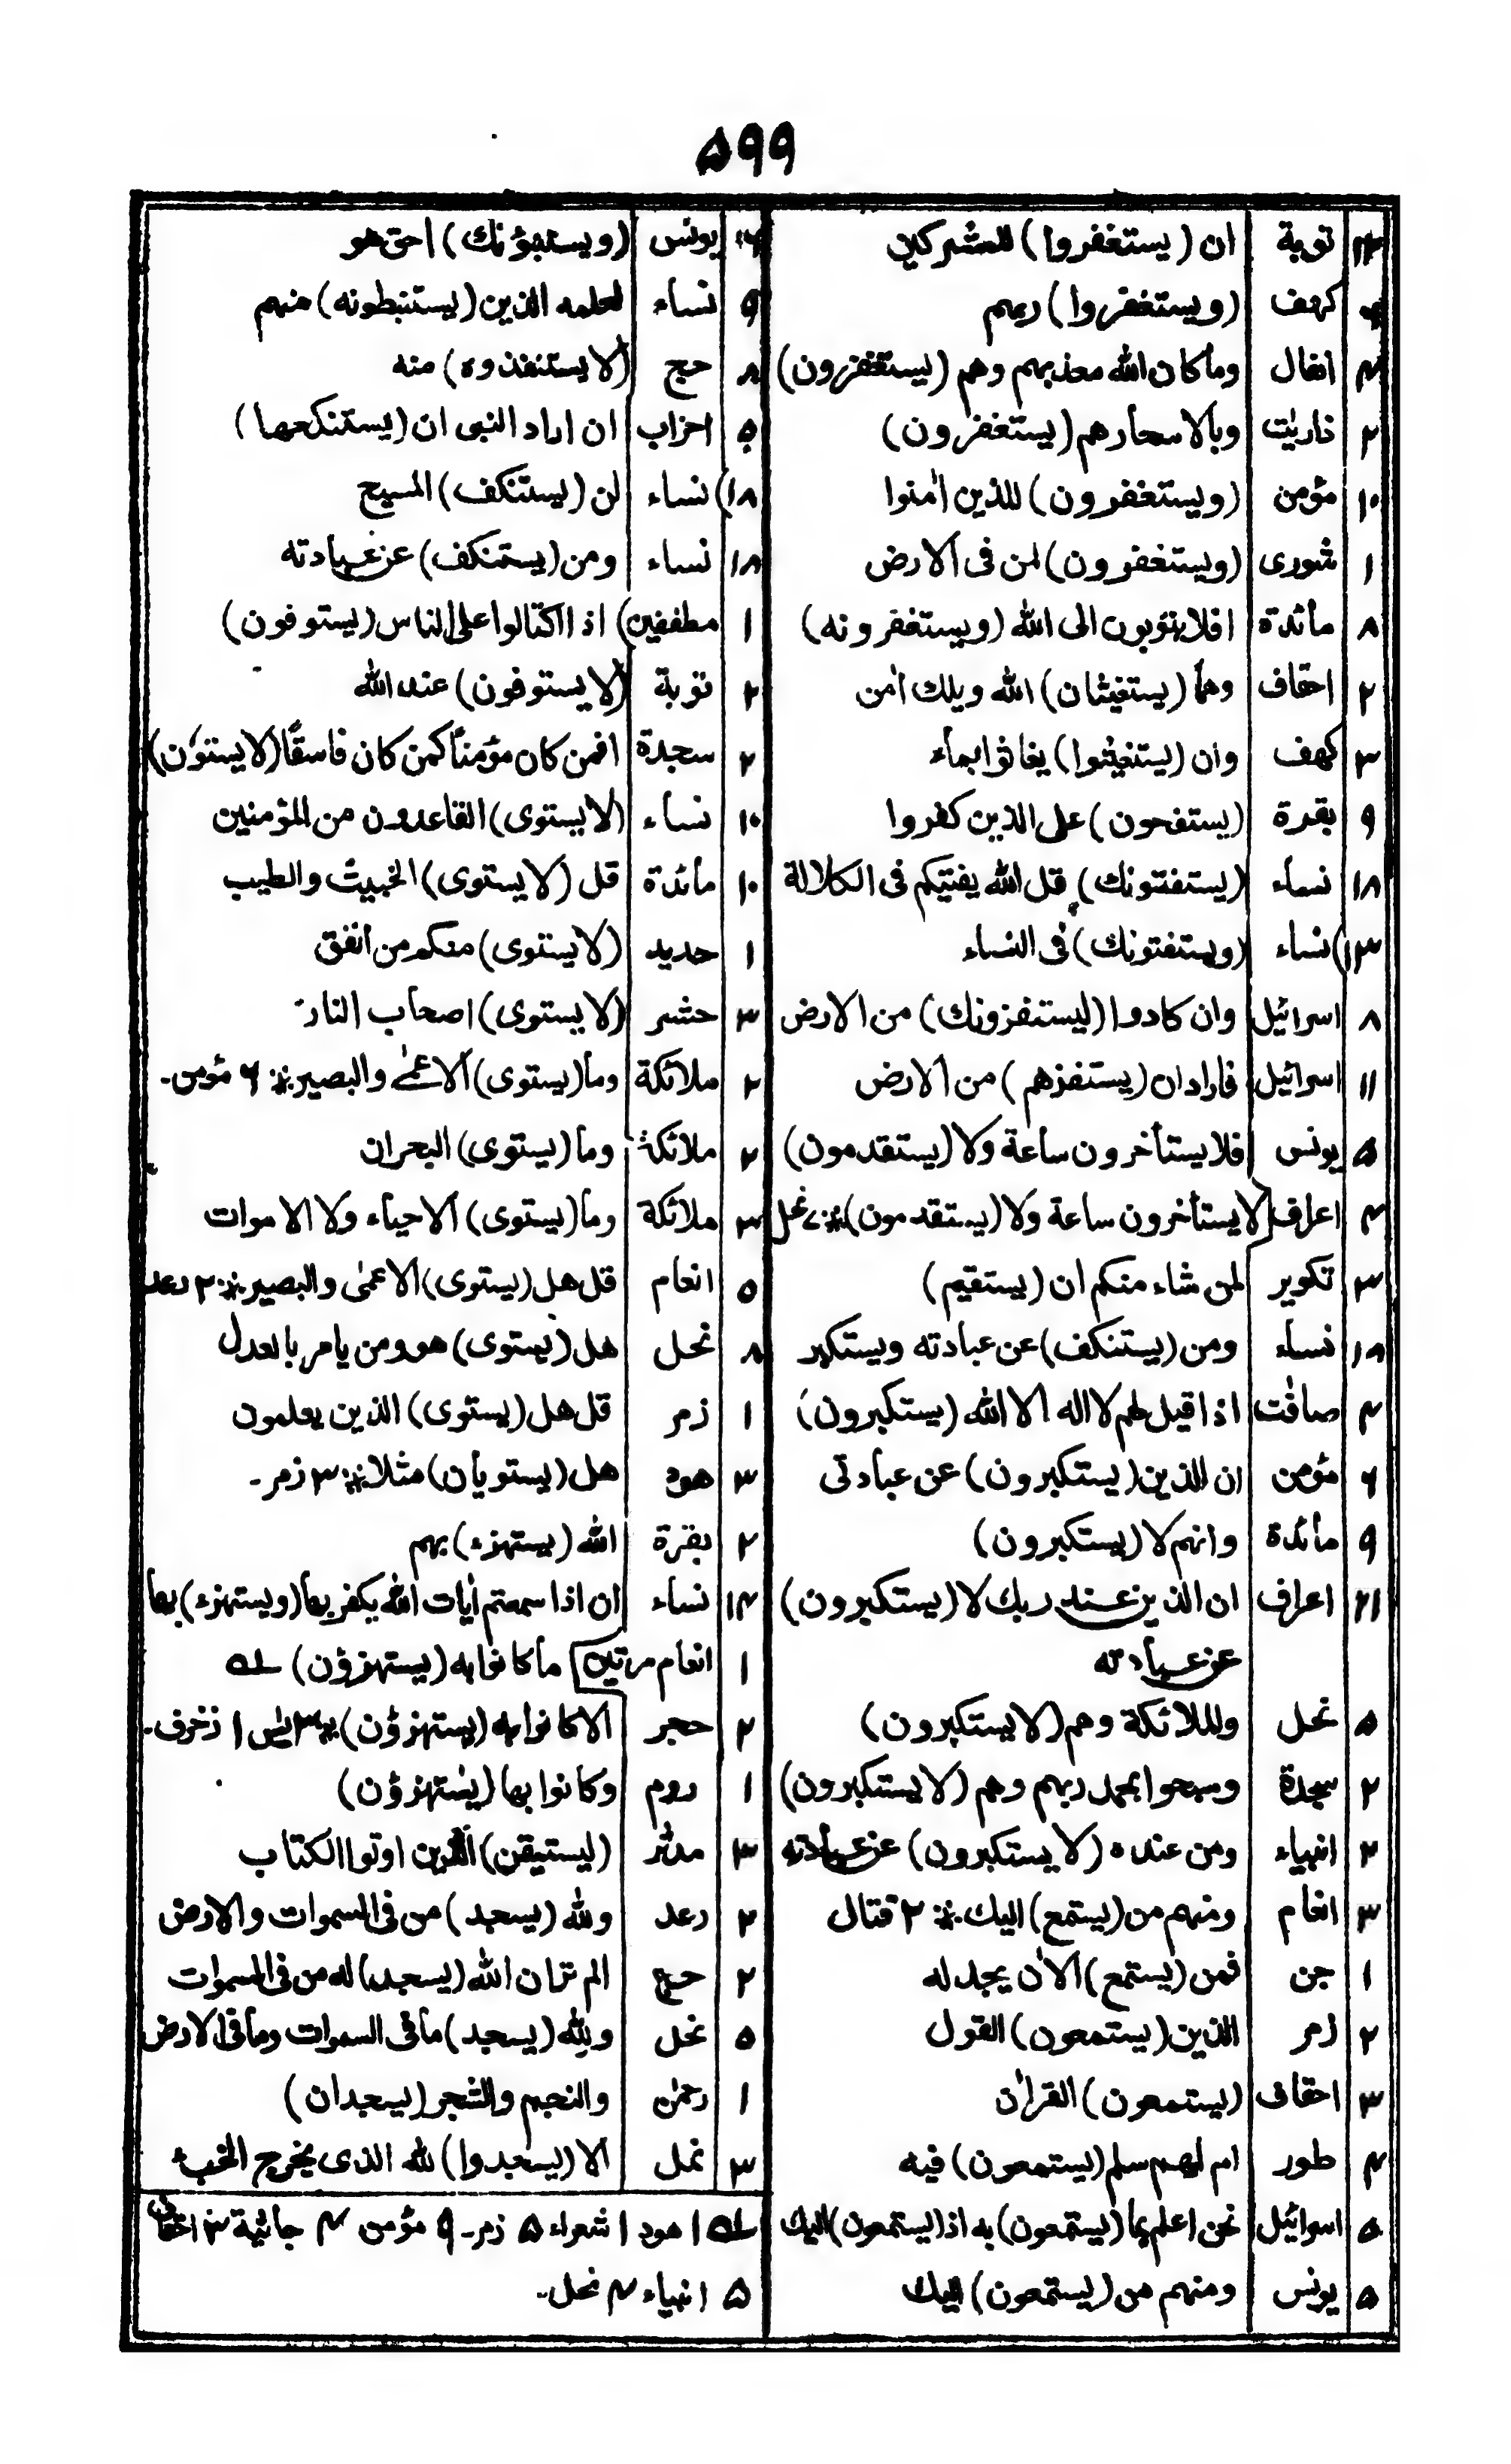 ۵۹۹
۱۴ توبة ان (يستغفروا) للمشركين
كهف (ويستغفروا) ربهم
۴ انفال وما كان الله معذبهم وهم (يستغفرون)
۲ ذاريٰت وبالاسحارهم (يستغفرون)
۱۰ مؤمن (ويستغفرون) للذين اٰمنوا
۱ شورى (ويستغفرون) لمن فى الارض
۸ مائدة افلا يتوبون الى الله (ويستغفرونه)
۲ احقاف وهما (يستغيثان) الله ويلك اٰمن
۳ كهف وان (يستغيثوا) يغاثوا بماء
۹ بقرة (يستفحون) على الذين كفروا
۱۸ نساء (يستفتونك) قل الله يفتيكم فى الكلالة
۱۳) نساء (ويستفتونك) فى النساء
۸ اسرائيل وان كادوا (ليستفزونك) من الارض
۱۱ اسرائيل فاراد ان (يستفزهم) من الارض
۵ يونس افلا يستأخرون ساعة ولا (يستقدمون)
۴ اعراف لا يستأخرون ساعة ولا (يستقدمون) ⁂ ۷ نحل
۳ تكوير لمن شاء منكم ان (يستقيم)
۱۸ نساء ومن (يستنكف) عن عبادته ويستكبر
۲ صافٰت اذا قيل لهم لا اله الا الله (يستكبرون)
۶ مؤمن ان الذين (يستكبرون) عن عبادتى
۹ مائدة وانهم لا (يستكبرون)
۲۱ اعراف ان الذين عند ربك لا (يستكبرون)
عن عبادته
۵ نحل والملائكة وهم (لا يستكبرون)
۲ سجدة وسبحوا بحمد ربهم وهم (لا يستكبرون)
۲ انبياء ومن عنده (لا يستكبرون) عن عبادته
۳ انعام ومنهم من (يستمع) اليك ⁂ ۲ قتال
۱ جن فمن (يستمع) الاٰن يجد له
۲ زمر الذين (يستمعون) القول
۳ احقاف (يستمعون) القراٰن
۴ طور ام لهم سلم (يستمعون) فيه
۵ اسرائيل نحن اعلم بما (يستمعون) به اذ (يستمعون) اليك
۵ يونس ومنهم من (يستمعون) اليك
يونس (ويستنبؤنك) احق هو
۹ نساء لعلمه الذين (يستنبطونه) منهم
۸ حج (لا يستنفذوه) منه
۵ احزاب ان اراد النبى ان (يستنكحها)
۱۸) نساء لن (يستنكف) المسيح
۱۸ نساء ومن (يستمنكف) عن عبادته
۱ مطففين) اذا اكتالوا على الناس (يستوفون)
۲ توبة (لا يستوفون) عند الله
۲ سجدة افمن كان مؤمناً كمن كان فاسقًا (لا يستوٗن)
۱۰ نساء (لا يستوى) القاعدون من المؤمنين
۱۰ مائدة قل (لا يستوى) الخبيث والطيب
۱ حديد (لا يستوى) منكم من انفق
۳ حشر (لا يستوى) اصحاب النار
۲ ملائكة وما (يستوى) الاعمٰى والبصير ⁂ ۶ مؤمن -
۲ ملائكة وما (يستوى) البحران
۳ ملائكة وما (يستوى) الاحياء ولا الاموات
۵ انعام قل هل (يستوى) الاعمٰى والبصير ⁂ ۲ رعد
۸ نحل هل (يستوى) هو ومن يامر بالعدل
۱ زمر قل هل (يستوى) الذين يعلمون
۳ هود هل (يستويان) مثلا ⁂ ۳ زمر -
۲ بقرة الله (يستهزء) بهم
۱۴ نساء ان اذا سمعتم اٰيات الله يكفر بها (ويستهزء) بها
۱ انعام مرتين ما كانوا به (يستهزؤن) لـه
۲ حجر الا كانوا به (يستهزؤن) ⁂ ۳ يٰس ۱ زخرف -
۱ روم وكانوا بها (يستهزؤن)
۳ مدثر (ليستيقن) الذين اوتوا الكتاب
۲ رعد ولله (يسجد) من فى السموات والارض
۲ حج الم تر ان الله (يسجد) له من فى السموات
۵ نحل ولله (يسجد) ما فى السموات وما فى الارض
۱ رحمٰن والنجم والشجر (يسجدان)
۳ نمل الا (يسجدوا) لله الذى يخرج الخبء
لـه ۱ هود ۱ شعراء ۵ زمر - ۹ مؤمن ۴ جاثية ۳ احقاف
۵ انبياء ۴ نحل -